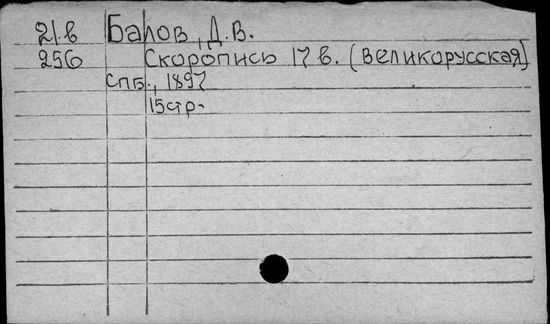 21.в Балов, Д.В.
256 Скоропись 17 в. (великорусская)
СПБ., 1897
15стр.